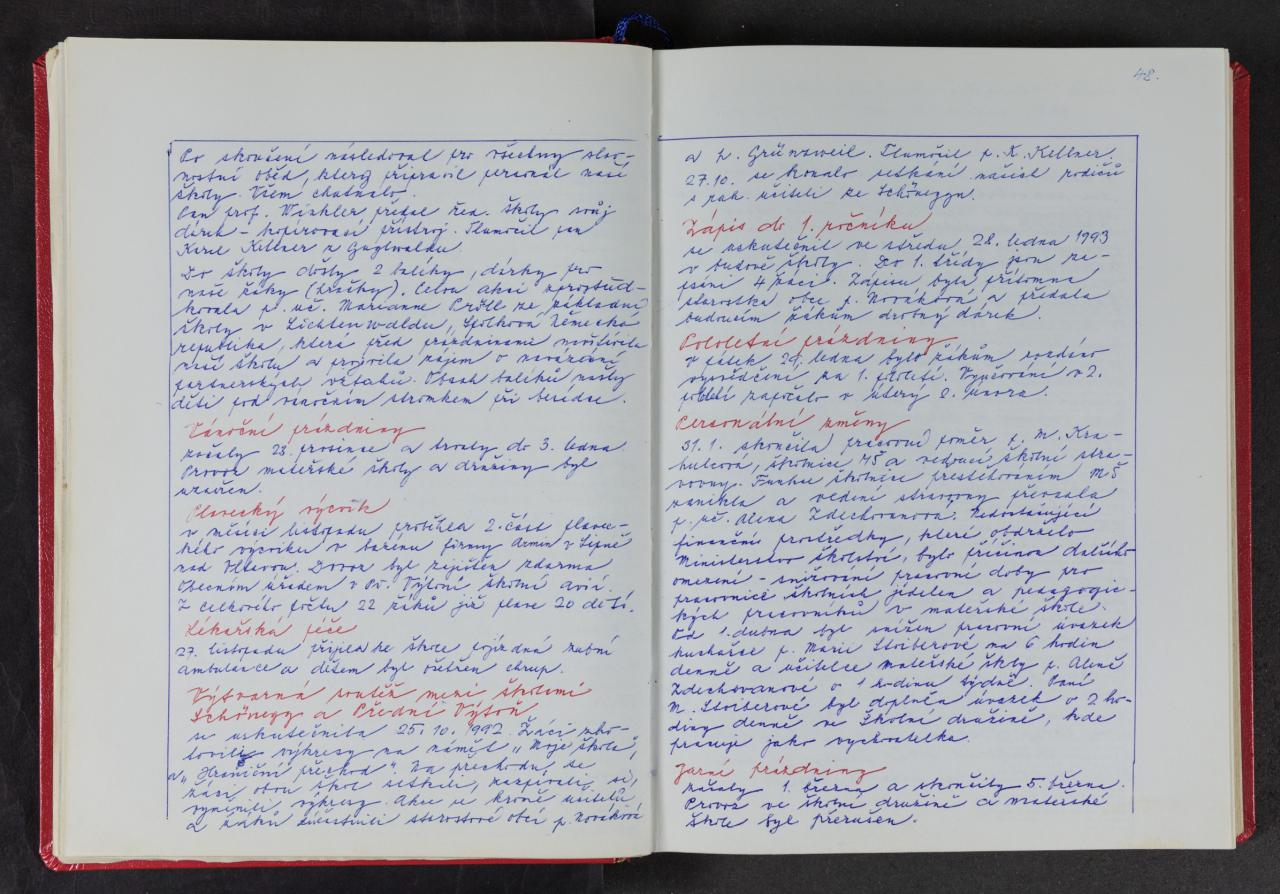 Po skončení následoval pro všechny slav-
nostní oběd, který připravil personál naší
školy. Všem chutnalo.
Pan prof. Winkler předal řed. školy svůj
dárek - kopírovací přístroj. Tlumočil pan
Karel Kellner z Guglwaldu
Do školy došly 2 balíky, dárky pro
naše žáky (hračky). Celou akci zprostřed-
kovala p. uč. Marianne Pröll ze základní
školy v Lichtenwaldu, Spolková Německá
republika, která před prázdninami navštívila
naší školu a projevila zájem o navázání
partnerských vztahů. Obsah balíků našly
děti pod vánočním stromkem při besídce.
Vánoční prázdniny
začaly 23. prosince a trvaly do 3. ledna
Provoz mateřské školy a družiny byl
uzavřen.
Plavecký výcvik
v měsíci listopadu proběhla 2. část plave-
ckého výcviku v bazénu firmy Armin v Lipně
nad Vltavou. Dovoz byl zajištěn zdarma
Obecním úřadem v Př. Výtoni školní avií.
Z celkového počtu 22 žáků již plave 20 dětí.
Lékařská péče
27. listopadu přijela ke škole pojízdná zubní
ambulance a dětem byl ošetřen chrup.
Výtvarná soutěž mezi školami
Schönegg a Přední Výtoň
se uskutečnila 25. 10. 1992. Žáci zho-
tovili výkresy na námět „Moje škola",
a „Hraniční přechod". Na přechodu se
žáci obou škol setkali, zazpívali si,
vyměnili výkresy. Akce se kromě učitelů
a žáků zúčastnili starostové obcí p. Nováková
48.
a h. Grünzweil. Tlumočil p. K. Kellner.
27.10. se konalo setkání našich rodičů
s rak. učiteli ze Schöneggu.
Zápis do 1. ročníku
se uskutečnil ve středu, 28. ledna 1993
v budově školy. Do 1. třídy jsou za-
psáni 4 žáci. Zápisu byla přítomna
starostka obce p. Nováková a předala
budoucím žákům drobný dárek.
Pololetní prázdniny
V pátek 29. ledna bylo žákům rozdáno
vysvědčení za 1. pololetí. Vyučování v 2.
pololetí započalo v úterý 2. února.
Personální změny
31. 1. skončila pracovní poměr p. M. Kra-
hulcová, školnice MŠ a vedoucí školní stra-
vovny. Funkce školnice přestěhováním MŠ
zanikla a vedení stravovny převzala
p. uč. Alena Zdechovanová. Nedostačující
finanční prostředky, které obdrželo
Ministerstvo školství, bylo příčinou dalšího
omezení - snižování pracovní doby pro
pracovnice školních jídelen a pedagogic-
kých pracovníků v mateřské škole.
Od 1. dubna byl snížen pracovní úvazek
kuchařce p. Marii Stoiberové na 6 hodin
denně a učitelce mateřské školy p. Aleně
Zdechovanové o 1 hodinu týdně. Paní
M. Stoiberové byl doplněn úvazek o 2 ho-
diny denně ve školní družině, kde
pracuje jako vychovatelka.
Jarní prázdniny
začaly 1. března a skončily 5. března.
Provoz ve školní družině a mateřské
škole byl přerušen.